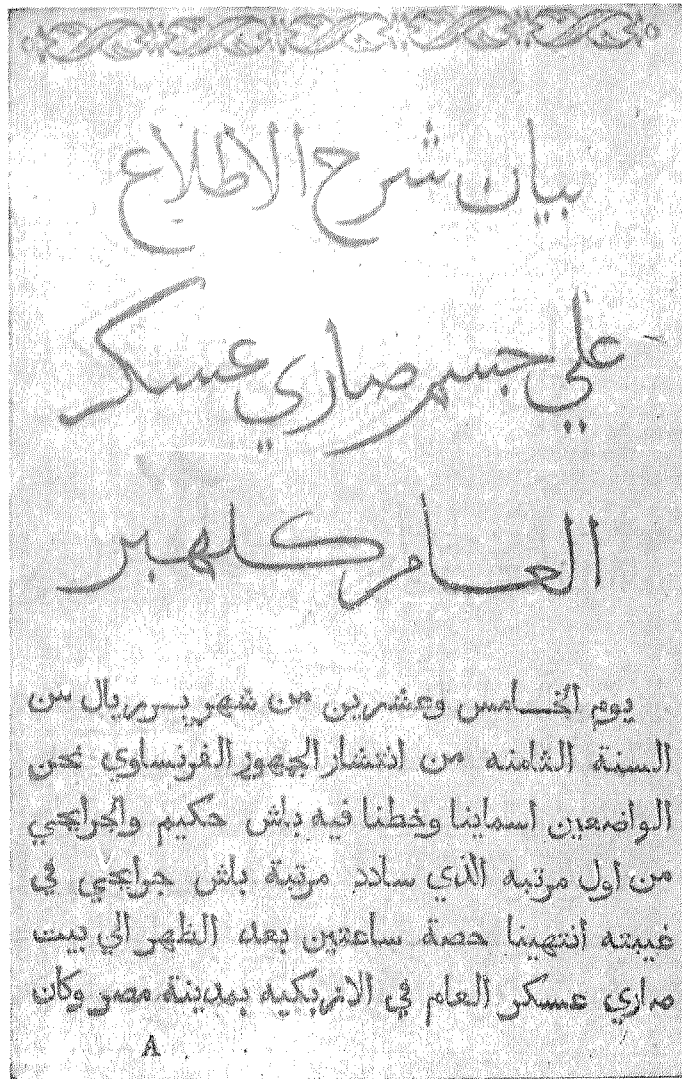 بيان شرح الاطلاع
علي جسم صاري عسكر
العام كلهبر
يوم الخامس وعشرين من شهر بريريال من
السنة الثامنه من انتشار الجمهور الفرنساوي نحن
الواضعين اسماينا وخطنا فيه باش حكيم والجرايحي
من اول مرتبه الذي سادد مرتبة باش جرايحي في
غيبته انتهينا حصة ساعتين بعد الظهر الي بيت
صاري عسكر العام في الازبكيه بمدينة مصر وكان
A